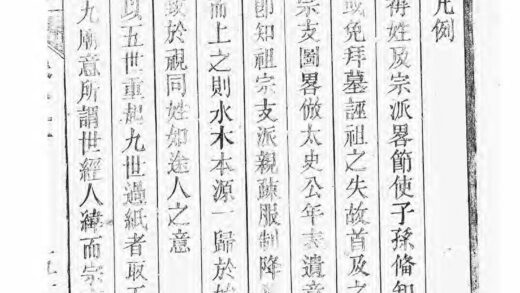 凡例
得姓及宗派畧節使子孫俻知
或免拜墓誣祖之失故首及之
宗支圖畧倣太史公年表遺意
即知祖宗支派親疎服制降
而上之則水木本源一歸於
致於視同姓如途人之意
以五世重起九世過紙者取
九廟意所謂世經人緯而宗